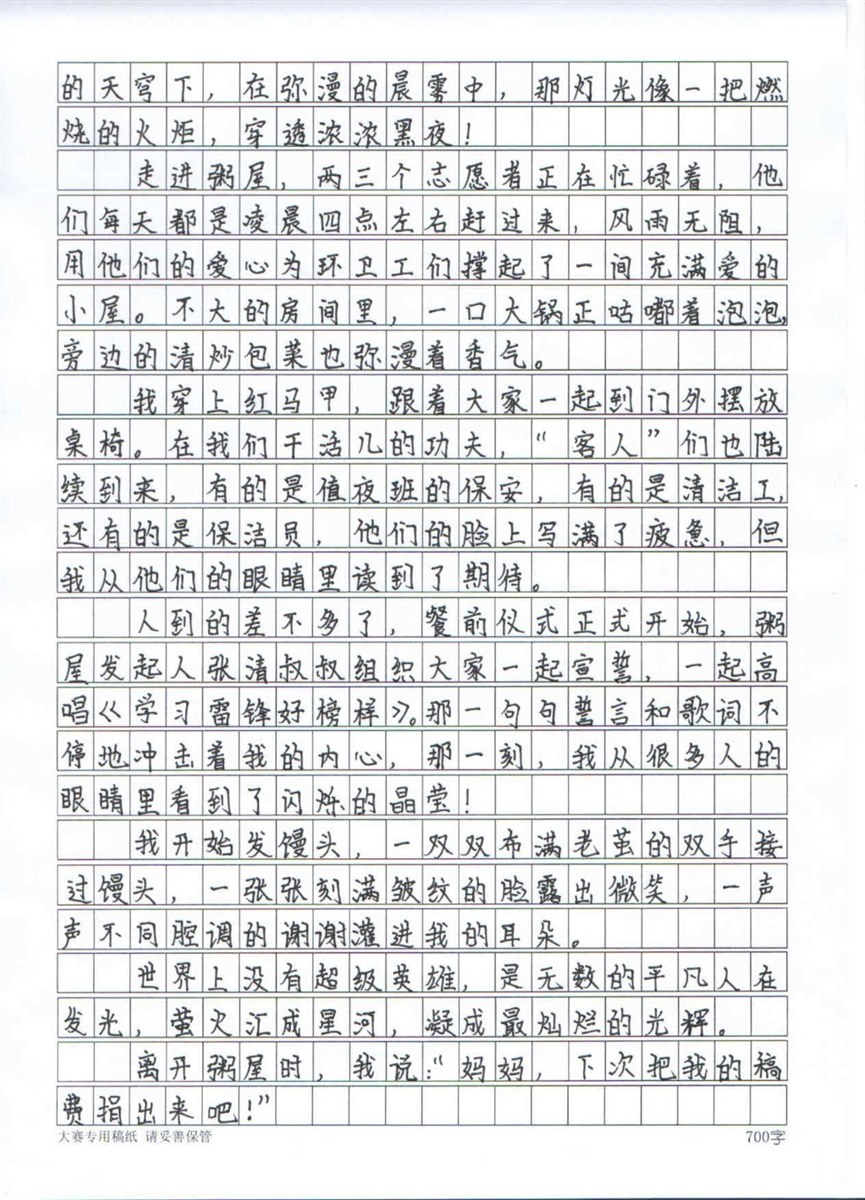 的天穹下，在弥漫的晨雾中，那灯光像一把燃
烧的火炬，穿透浓浓黑夜！
走进粥屋，两三个志愿者正在忙碌着，他
们每天都是凌晨四点左右赶过来，风雨无阻，
用他们的爱心为环卫工们撑起了一间充满爱的
小屋。不大的房间里，一口大锅正咕嘟着泡泡，
旁边的清炒包菜也弥漫着香气。
我穿上红马甲，跟着大家一起到门外摆放
桌椅。在我们干活儿的功夫，“客人”们也陆
续到来，有的是值夜班的保安，有的是清洁工，
还有的是保洁员，他们的脸上写满了疲惫，但
我从他们的眼睛里读到了期待。
人到的差不多了，餐前仪式正式开始，粥
屋发起人张清叔叔组织大家一起宣誓，一起高
唱《学习雷锋好榜样》。那一句句誓言和歌词不
停地冲击着我的内心，那一刻，我从很多人的
眼睛里看到了闪烁的晶莹！
我开始发馒头，一双双布满老茧的双手接
过馒头，一张张刻满皱纹的脸露出微笑，一声
声不同腔调的谢谢灌进我的耳朵。
世界上没有超级英雄，是无数的平凡人在
发光，萤火汇成星河，凝成最灿烂的光辉。
离开粥屋时，我说：“妈妈，下次把我的稿
费捐出来吧！”
大赛专用稿纸 请妥善保管 700字